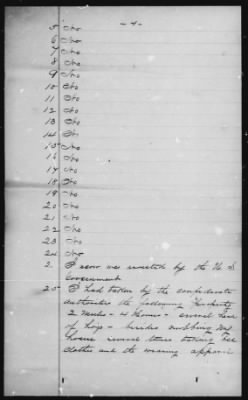 - 4 -
5 No
6 No
7 No
8 No
9 No
10 No
11 No
12 No
13 No
14 No
15 No
16 No
17 No
18 No
19 No
20 No
21 No
22 No
23 No
24 No
2 I never was arrested by the U S
Government
25 I had taken by the confederate
authorities the following Property
2 Mules - 4 Horses - several head
of Hogs - besides robbing my
house several times taking bed
clothes and the wearing apparel